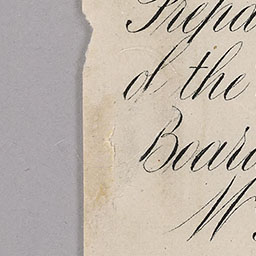 Prepa
of the
Board
W